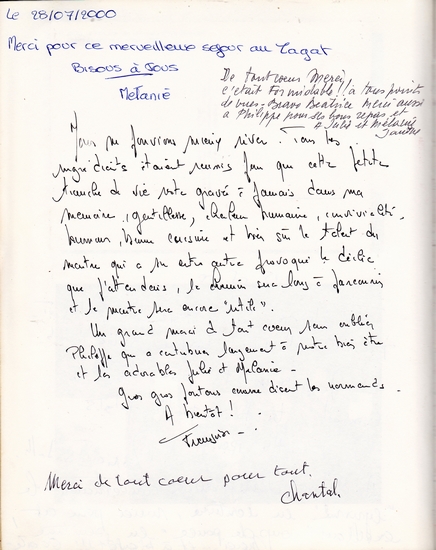 Le 28/07/2000
Merci pour ce merveilleux séjour au Tagat
Bisous à Tous
Melanie
De tout coeur Merci,
c'était formidable !! à tous points
de vues - Bravo Béatrice Merci aussi
à Philippe pour ses bons repas et
A Julie et Mélanie
Nous ne pouvions mieux rêver. Tous les
ingrédients étaient réunis pour que cette petite
tranche de vie reste gravée à jamais dans ma
mémoire, gentillesse, chaleur humaine, convivialité,
humour, bonne cuisine et bien sûr le talent du
maître qui a su entre autre provoquer le déclic
que j'attendais, le chemin sera long à parcourir
et le maître sera encore "utile".
Un grand merci de tout coeur sans oublier
Philippe qui a contribué largement à notre bien être
et les adorables Julie et Mélanie -
Gros gros comme disent les normands.
A bientôt !
Françoise
Merci de tout coeur pour tout.
Chantal